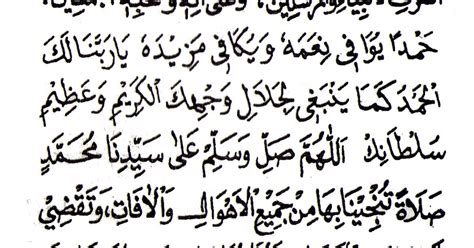 حَمْدًا يُوَافِى نِعَمَهُ وَيُكَافِى مَزِيْدَهُ يَارَبَّنَالَكَ
الْحَمْدُ كَمَا يَنْبَغِى لِجَلَالِ وَجْهِكَ الْكَرِيْمِ وَعَظِيْمِ
سُلْطَانِكَ اَللّٰهُمَّ صَلِّ وَسَلِّمْ عَلٰى سَيِّدِنَا مُحَمَّدٍ
صَلَاةً تُنْجِيْنَا بِهَا مِنْ جَمِيْعِ الْاَهْوَالِ وَالْاٰفَاتِ، وَتَقْضِيْ